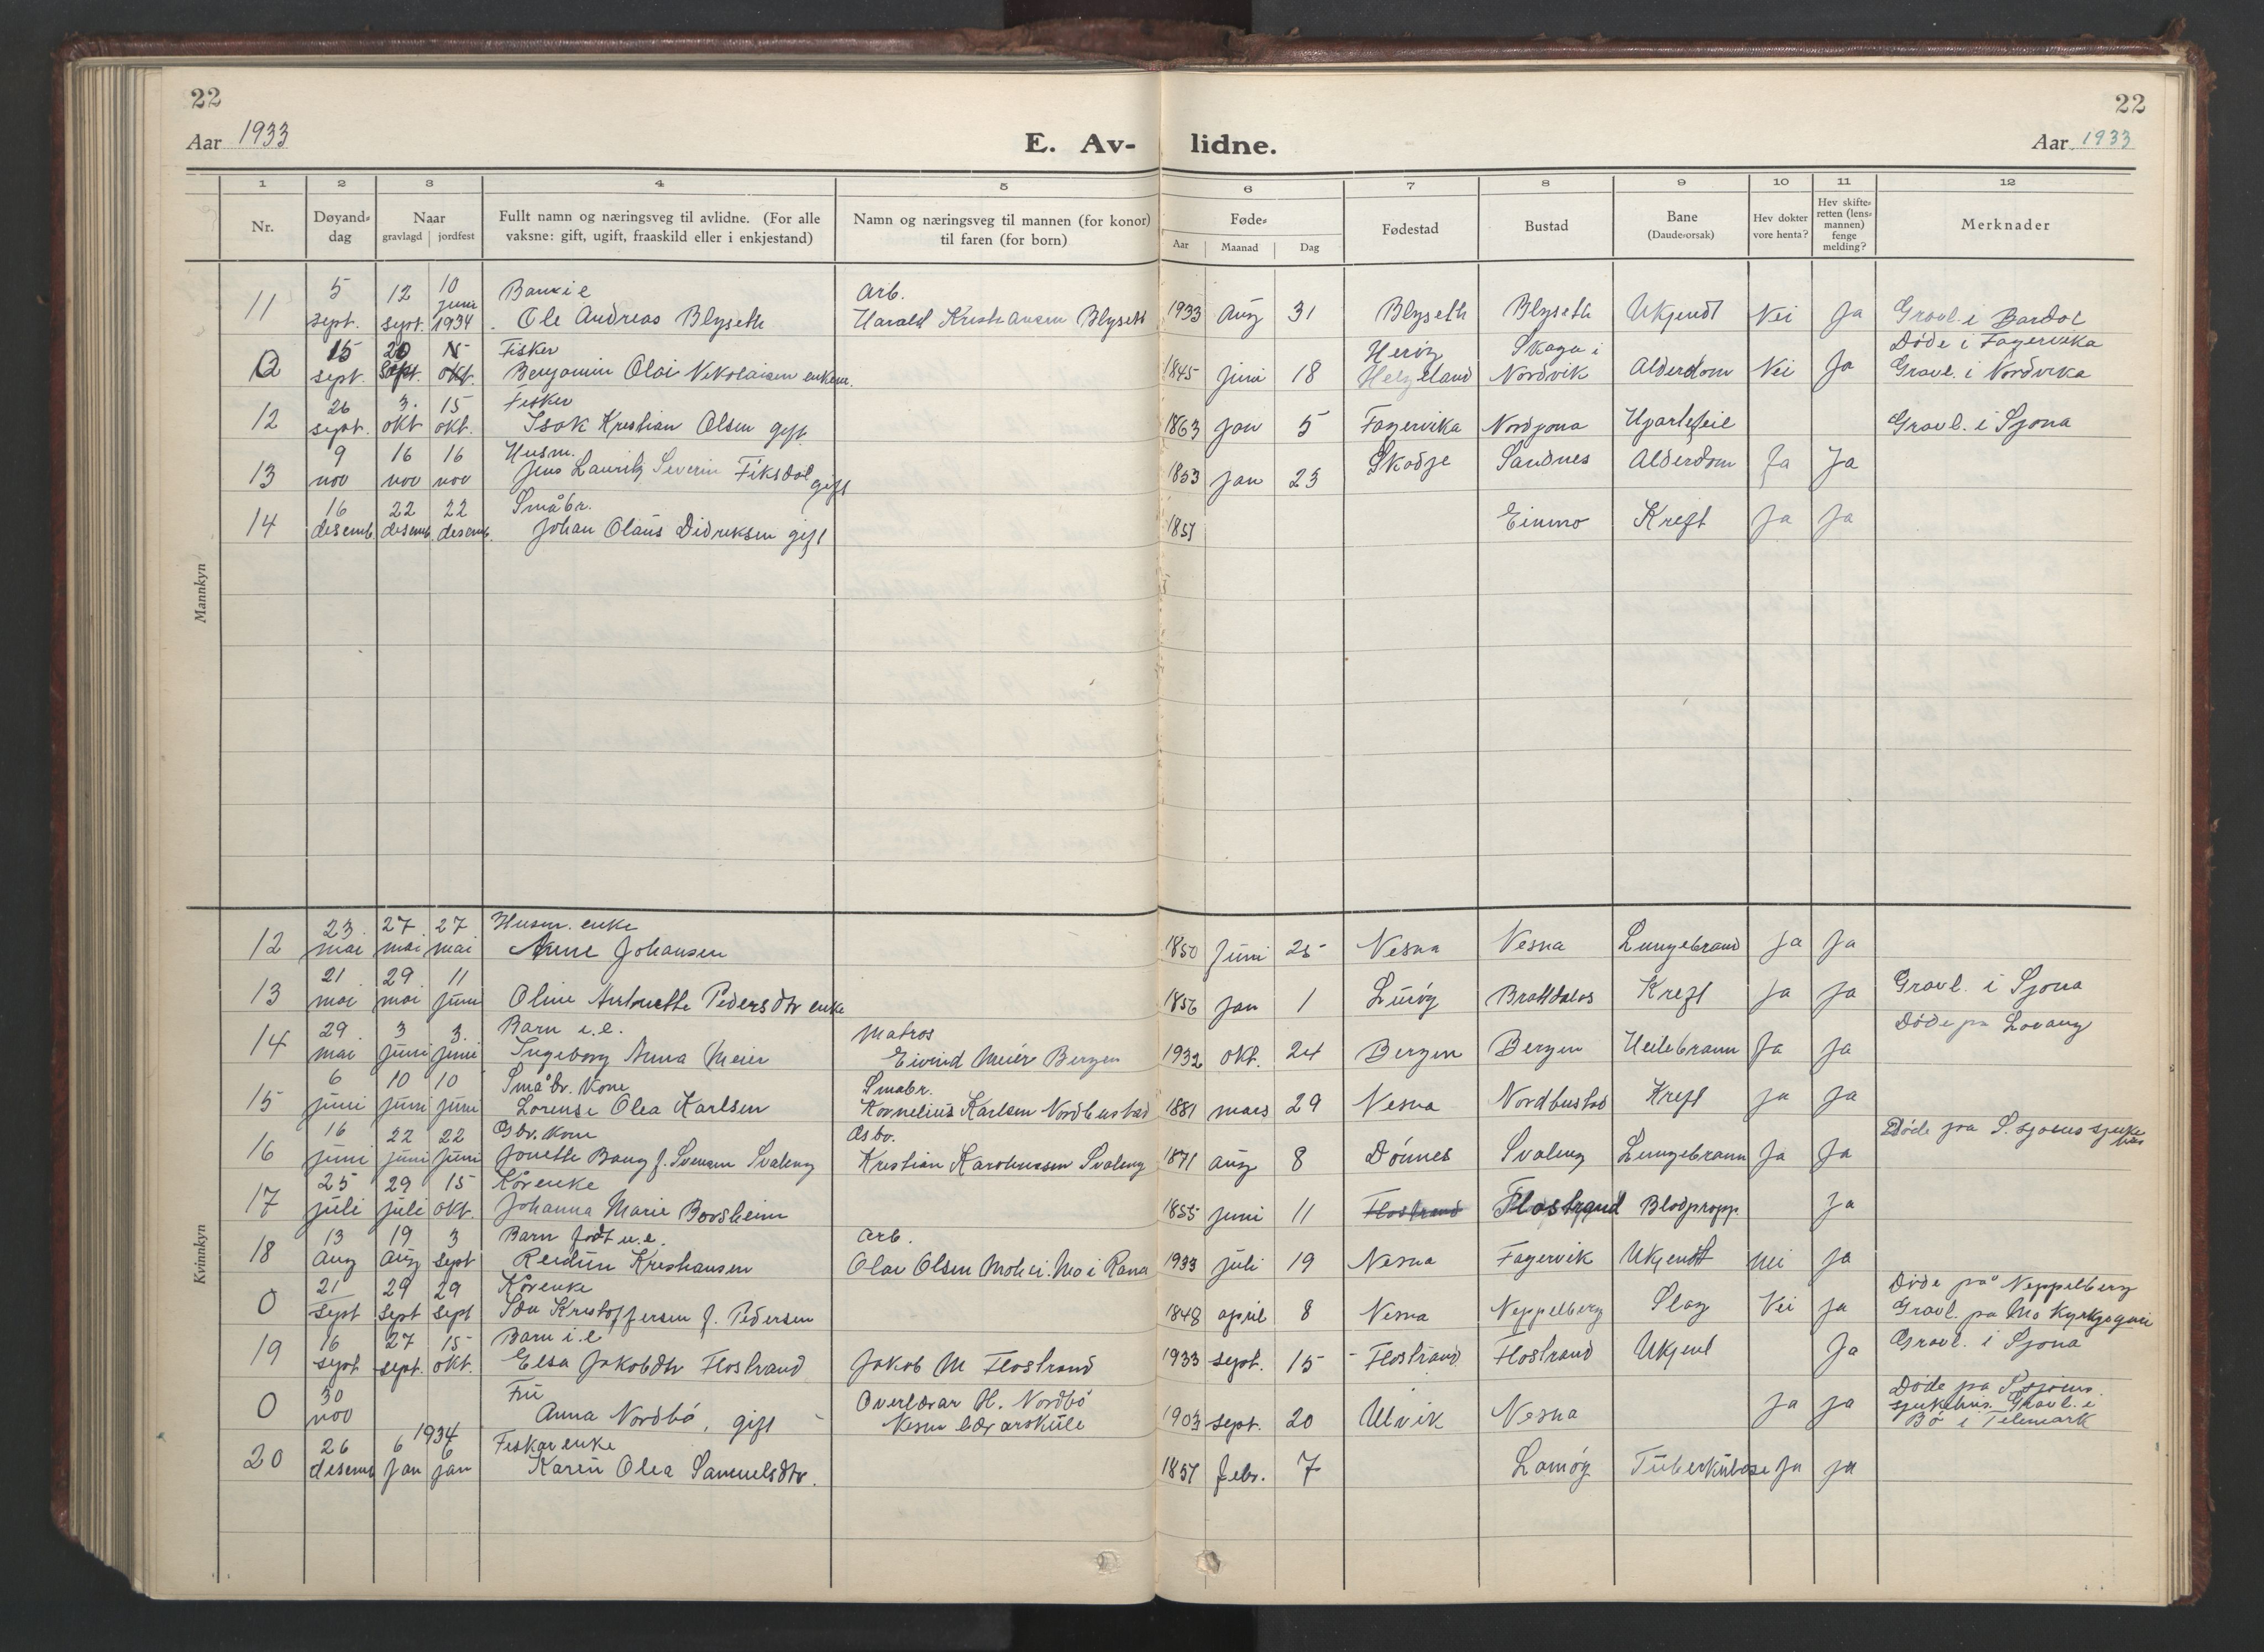 22
22
Aar 1933
E. Av- lidne.
Aar 1933
1 2 3 4 5 6 7 8 9 10 11 12
Nr.
Døyand-
dag
Naar
gravlagd jordfest
Fullt namn og næringsveg til avlidne. (For alle
vaksne: gift, ugift, fraaskild eller i enkjestand)
Namn og næringsveg til mannen (for konor)
til faren (for born)
Føde-
Aar Maanad Dag
Fødestad
Bustad
Bane
(Daude-orsak)
Hev dokter
vore henta?
Hev skifte-
retten (lens-
mannen)
fenge
melding?
Merknader
Mannkyn
11 5 sept. 12 sept. 10 juni 1934 Barn i e Ole Andreas Blyseth Arb. Harald Kristiansen Blyseth 1933 Aug 31 Blyseth Blyseth Ukjendt Nei Ja Gravl. i Bardal
0 15 sept. 20 sept. 15 okt. Fisker Benjamin Olai Nikolaisen enkem. 1845 juni 18 Herøy Helgeland Skaga i Nordvik Alderdom Nei Ja Døde i Fagervika Gravl. i Nordvika
12 26 sept. 3. okt 15 okt. Fisker Isak Kristian Olsen gift 1863 jan 5 Fagervika Nordsjona Hjartefeil Gravl. i Sjona
13 9 nov 16 nov 16 nov Husm. Jens Lauritz Severin Fiksdal gift 1853 jan 23 Skodje Sandnes Alderdom Ja Ja
14 16 desemb. 22 desemb. 22 desemb. Småbr. Johan Olaus Didriksen gift 1851 Einmo Kreft Ja Ja
Kvinnkyn
12 23. mai 27. mai 27 mai Husm. enke Anne Johansen 1850 Juni 25 Nesna Nesna Lungebrand Ja Ja
13 21 mai 29 mai 11 juni Oline Antonette Pedersdtr enke 1856 jan 1 Lurøy Brattdalos Kreft Ja Ja Gravl. i Sjona
14 29. mai 3 juni 3. juni Barn i.e. Ingeborg Anna Meier Matros Eivind Meier Bergen 1932 okt. 24 Bergen Bergen Heilebrann Ja Ja Døde på Lovang
15 6 juni 10 juni 10 juni Småbr. kone Lorense Olea Karlsen Småbr. Kornelius Karlsen Nordbustad 1881 mars 29 Nesna Nordbustad Kreft Ja Ja
16 16 juni 22 juni 22 juni Gbr. kone Jonette Bang f. Svensen Svaleng Gbr. Kristian Karoliussen Svaleng 1871 Aug 8 Dønnes Svaleng Lungebrann Ja Ja Døde på S.sjøens sjukehus
17 25 juli 29 juli 15 okt. Kårenke Johanna Marie Borsheim 1855 juni 11 Flostrand Flostrand Blodpropp. Ja
18 13 Aug 19 Aug 3 sept Barn født u.e. Reidun Kristiansen Arb. Olav Olsen Moli. Mo i Rana 1933 juli 19 Nesna Fagervik Ukjendt Nei Ja
0 21 sept 29 sept 29 sept Kårenke Ida Kristoffersen f. Pedersen 1848 april 8 Nesna Neppelberg Slag Nei Ja Døde på Neppelberg Gravl. på Mo Kyrkjegard
19 16 sept. 27 sept. 15 okt. Barn i.e Elsa Jakobdtr Flostrand Jakob M Flostrand 1933 sept. 15 Flostrand Flostrand Ukjent Ja Gravl. i Sjona
0 30 nov Fru Anna Nordbø, gift Overlærar H. Nordbø Nesna lærarskule 1903 sept. 20 Ulvik Nesna Ja Ja Døde på S.sjøens sjukehus. Gravl. i Bø i Telemark
20 26 desemb 1934 6 jan 6 jan Fiskarenke Karen Olea Samuelsdtr. 1857 febr. 7 Lamøy Tuberkulose Ja Ja